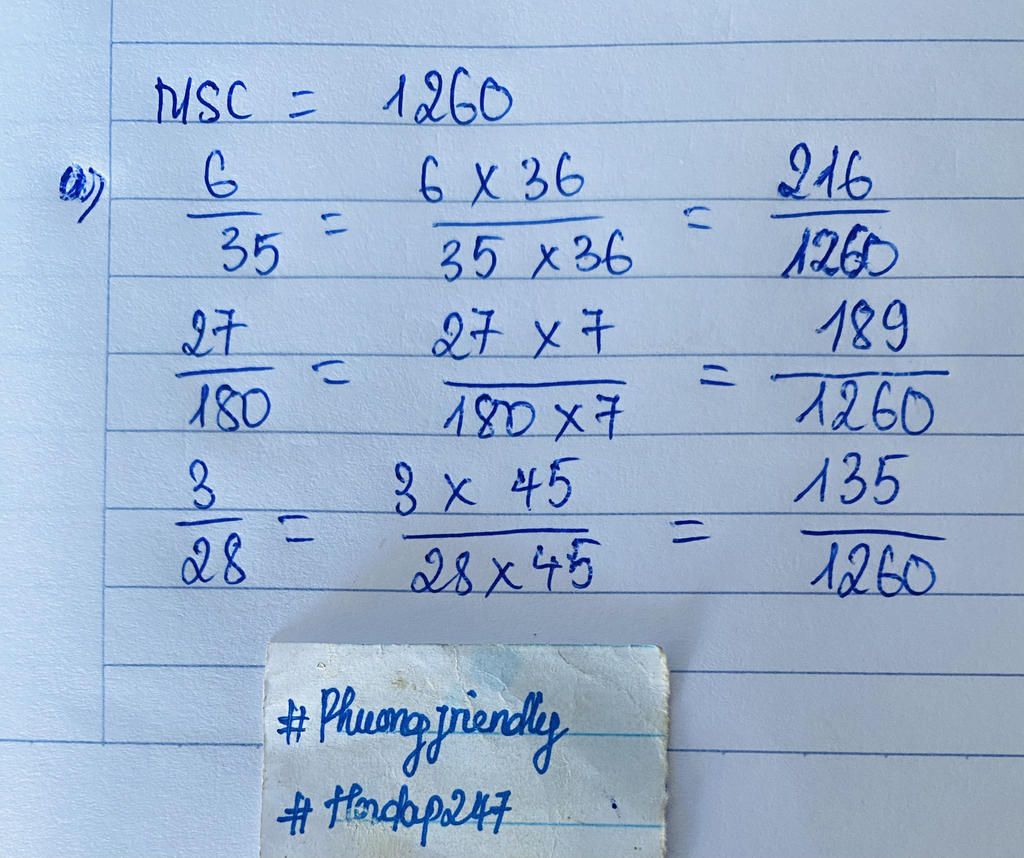 MSC = 1260
a) 6/35 = 6 x 36 / 35 x 36 = 216/1260
27/180 = 27 x 7 / 180 x 7 = 189/1260
3/28 = 3 x 45 / 28 x 45 = 135/1260
# Phuongfriendly
# Hoidap247